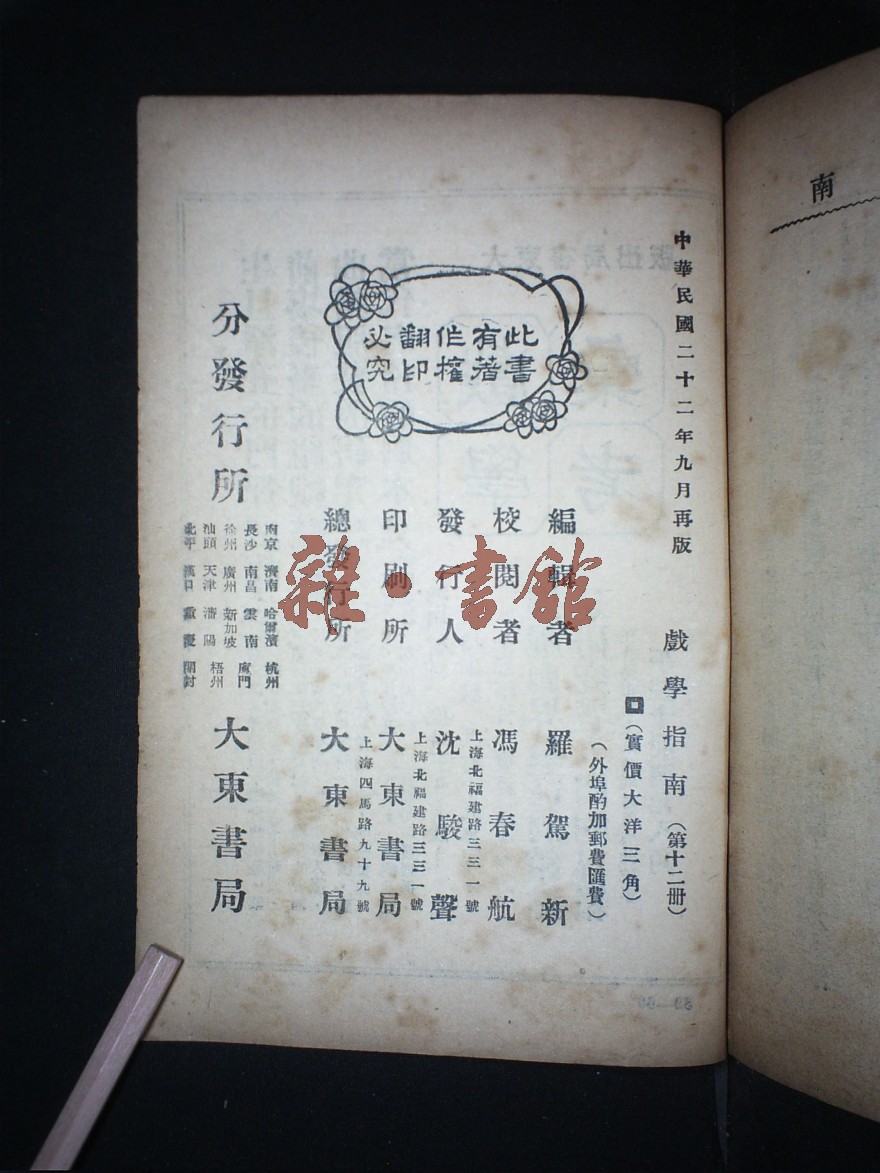 南
中華民國二十二年九月再版
戲學指南（第十二册）
（實價大洋三角）
（外埠酌加郵費匯費）
此書
有著
作權
翻印
必究
編輯者 羅駕新
校閱者 馮春航
上海北福建路三三一號
發行人 沈駿聲
上海北福建路三三一號
印刷所 大東書局
上海四馬路九十九號
總發行所 大東書局
分發行所
南京 濟南 哈爾濱 杭州
長沙 南昌 雲南 廈門
徐州 廣州 新加坡 梧州
汕頭 天津 瀋陽
北平 漢口 重慶 開封
大東書局
雜·書館